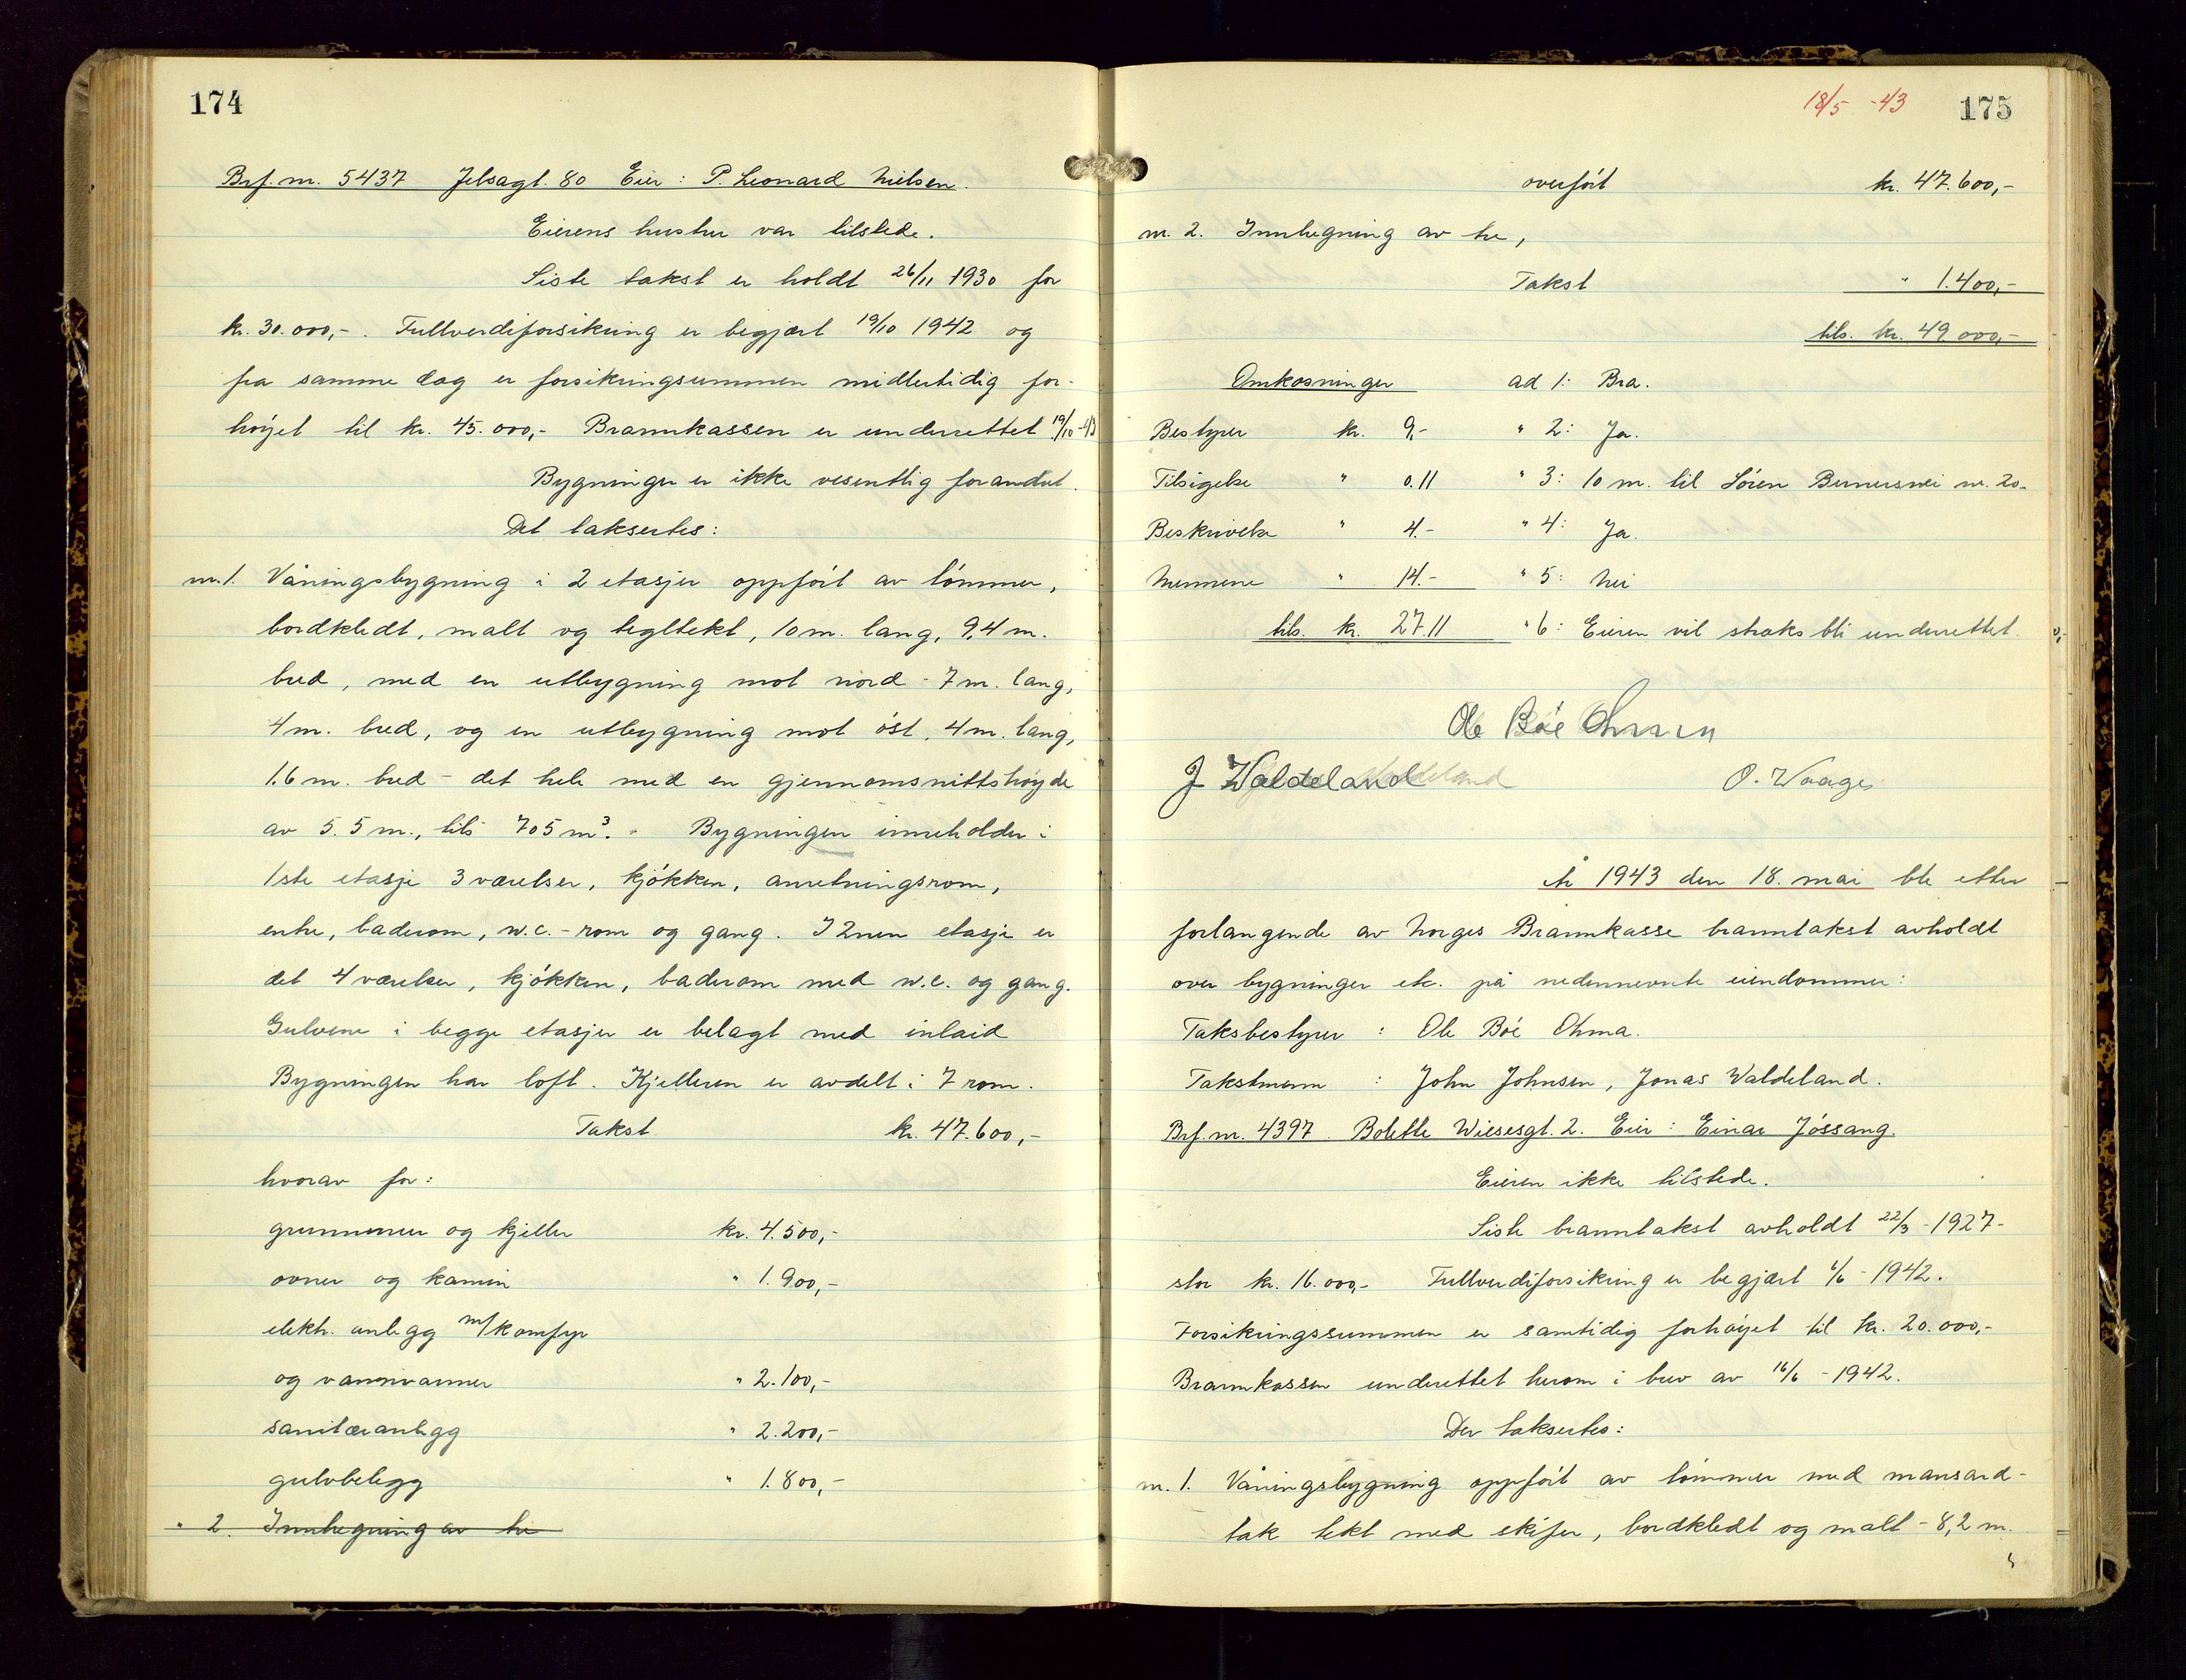 174
Brf. nr. 5437 Jelsagt. 80 Eier: P. Leonard Nielsen.
Eierens hustru var tilstede.
Siste takst er holdt 26/11 1930 for
kr. 30.000,-. Fullverdiforsikring er begjært 19/10 1942 og
fra samme dag er forsikringsummen midlertidig for-
høyet til kr. 45.000,- Brannkassen er underrettet 19/10-43
Bygninger er ikke vesentlig forandret.
Det taksertes:
nr. 1. Våningsbygning i 2 etasjer oppført av tømmer,
bordkledt, malt og tegltekt, 10 m. lang, 9,4 m.
bred, med en utbygning mot nord - 7 m. lang,
4 m. bred, og en utbygning mot øst, 4 m. lang,
1.6 m. bred - det hele med en gjennomsnittshøyde
av 5.5 m., tils 705 m³. Bygningen inneholder i
1ste etasje 3 værelser, kjøkken, anretningsrom,
entre, baderom, w.c.-rom og gang. I 2nen etasje er
det 4 værelser, kjøkken, baderom med w.c. og gang.
Gulvene i begge etasjer er belagt med inlaid
Bygningen har loft. Kjelleren er avdelt i 7 rom.
Takst kr. 47.600,-
hvorav for:
grunnmur og kjeller kr. 4.500,-
ovner og kamin " 1.900,-
elektr. anlegg m/komfyr
og vannvarmer " 2.100,-
sanitæranlegg " 2.200,-
gulvbelegg " 1.800,-
" 2. Innhegning av tre
18/5 -43 175
overført kr. 47.600,-
nr. 2. Innhegning av tre,
Takst " 1.400,-
tils. kr. 49 000,-
Omkosninger ad 1: Bra.
Bestyrer kr. 9,- " 2: Ja.
Tilsigelse " 0.11 " 3: 10 m. til Søren Bernersvei nr. 20.
Beskrivelse " 4.- " 4: Ja.
Mennene " 14.- " 5: Nei
tils. kr. 27.11 " 6: Eieren vil straks bli underrettet.
Ole Bøe Ohma
J Waldeland O. Waage
År 1943 den 18. mai ble etter
forlangende av Norges Brannkasse branntakst avholdt
over bygninger etc. på nedennevnte eiendommer:
Taksbestyrer : Ole Bøe Ohma.
Takstmenn : John Johnsen, Jonas Waldeland.
Brf. nr. 4397. Bolette Wiesesgt. 2. Eier: Einar Jøssang.
Eieren ikke tilstede.
Siste branntakst avholdt 22/3 -1927-
stor kr. 16.000,- Fullverdiforsikring er begjært 6/6 -1942.
Forsikringssummen er samtidig forhøyet til kr. 20.000,-
Brannkassen underettet herom i brev av 16/6 -1942.
Der taksertes:
nr. 1. Våningsbygning oppført av tømmer med mansard-
tak tekt med skifer, bordkledt og malt - 8,2 m.